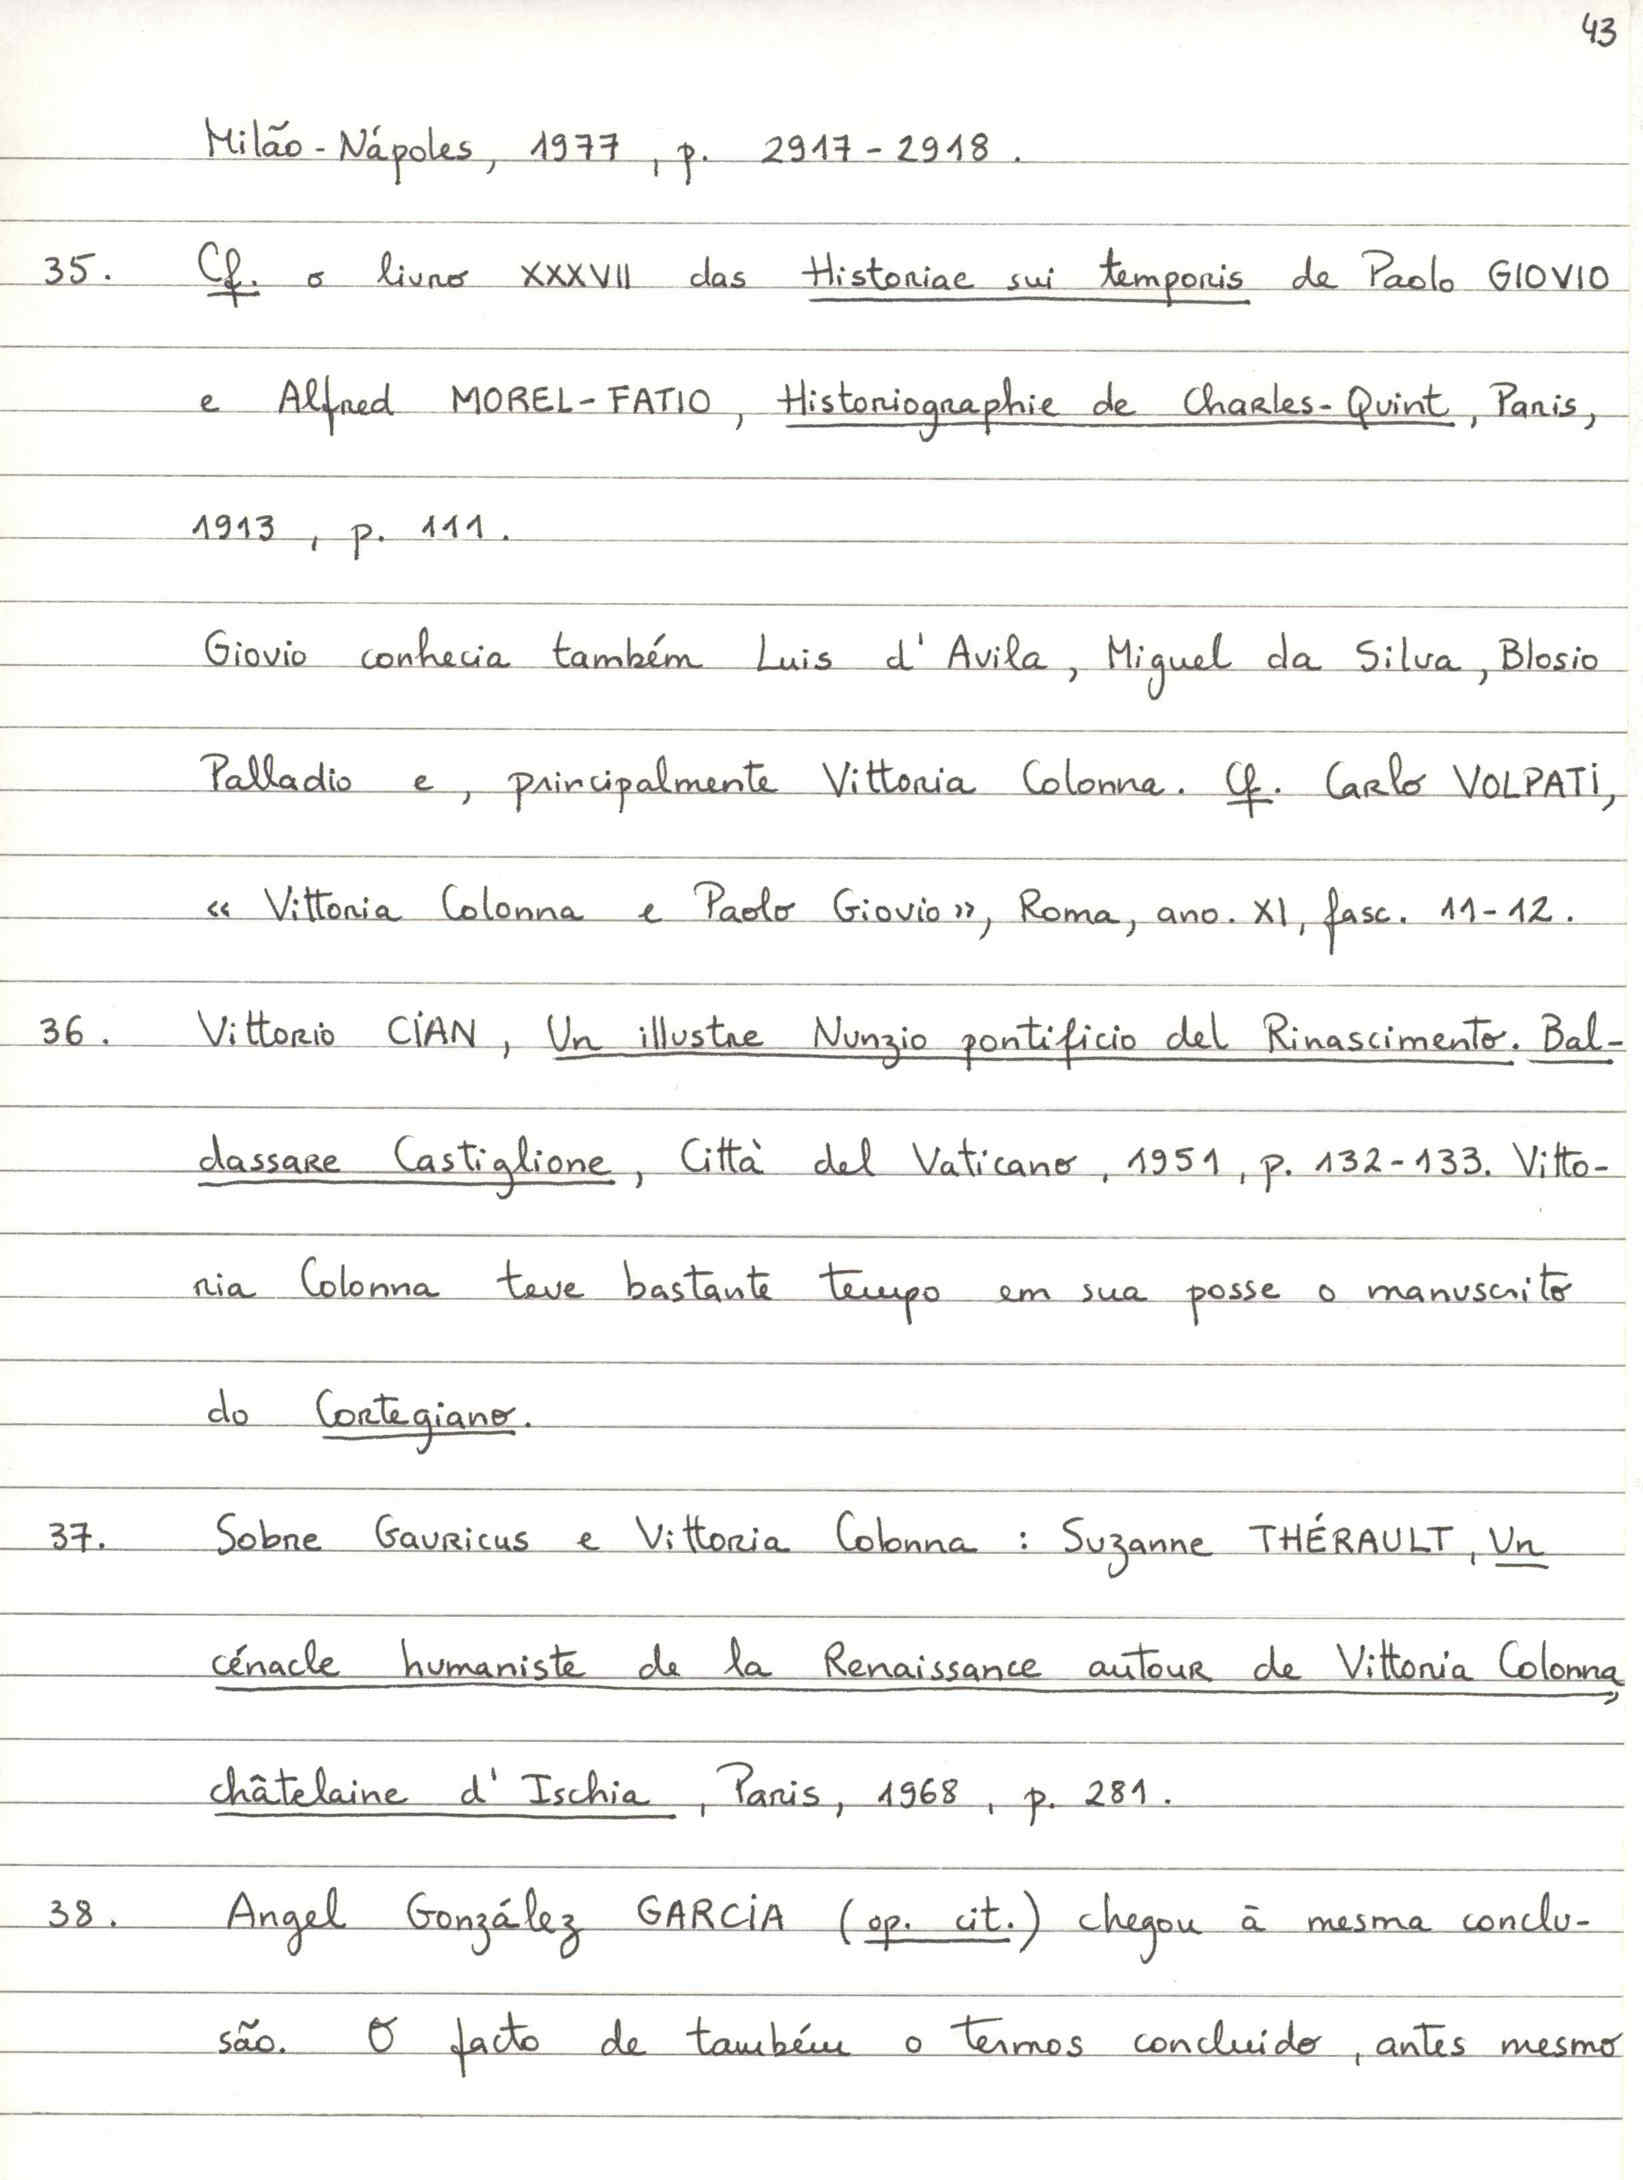 43
Milão-Nápoles, 1977, p. 2917-2918.
35. Cf. o livro XXXVII das Historiae sui temporis de Paolo GIOVIO
e Alfred MOREL-FATIO, Historiographie de Charles-Quint, Paris,
1913, p. 111.
Giovio conhecia também Luis d'Avila, Miguel da Silva, Blosio
Palladio e, principalmente Vittoria Colonna. Cf. Carlo VOLPATI,
« Vittoria Colonna e Paolo Giovio», Roma, ano. XI, fasc. 11-12.
36. Vittorio CIAN, Un illustre Nunzio pontificio del Rinascimento. Bal-
dassare Castiglione, Città del Vaticano, 1951, p. 132-133. Vitto-
ria Colonna teve bastante tempo em sua posse o manuscrito
do Cortegiano.
37. Sobre Gauricus e Vittoria Colonna : Suzanne THÉRAULT, Un
cénacle humaniste de la Renaissance autour de Vittoria Colonna,
châtelaine d'Ischia, Paris, 1968, p. 281.
38. Angel González GARCIA (op. cit.) chegou à mesma conclu-
são. O facto de também o termos concluido, antes mesmo